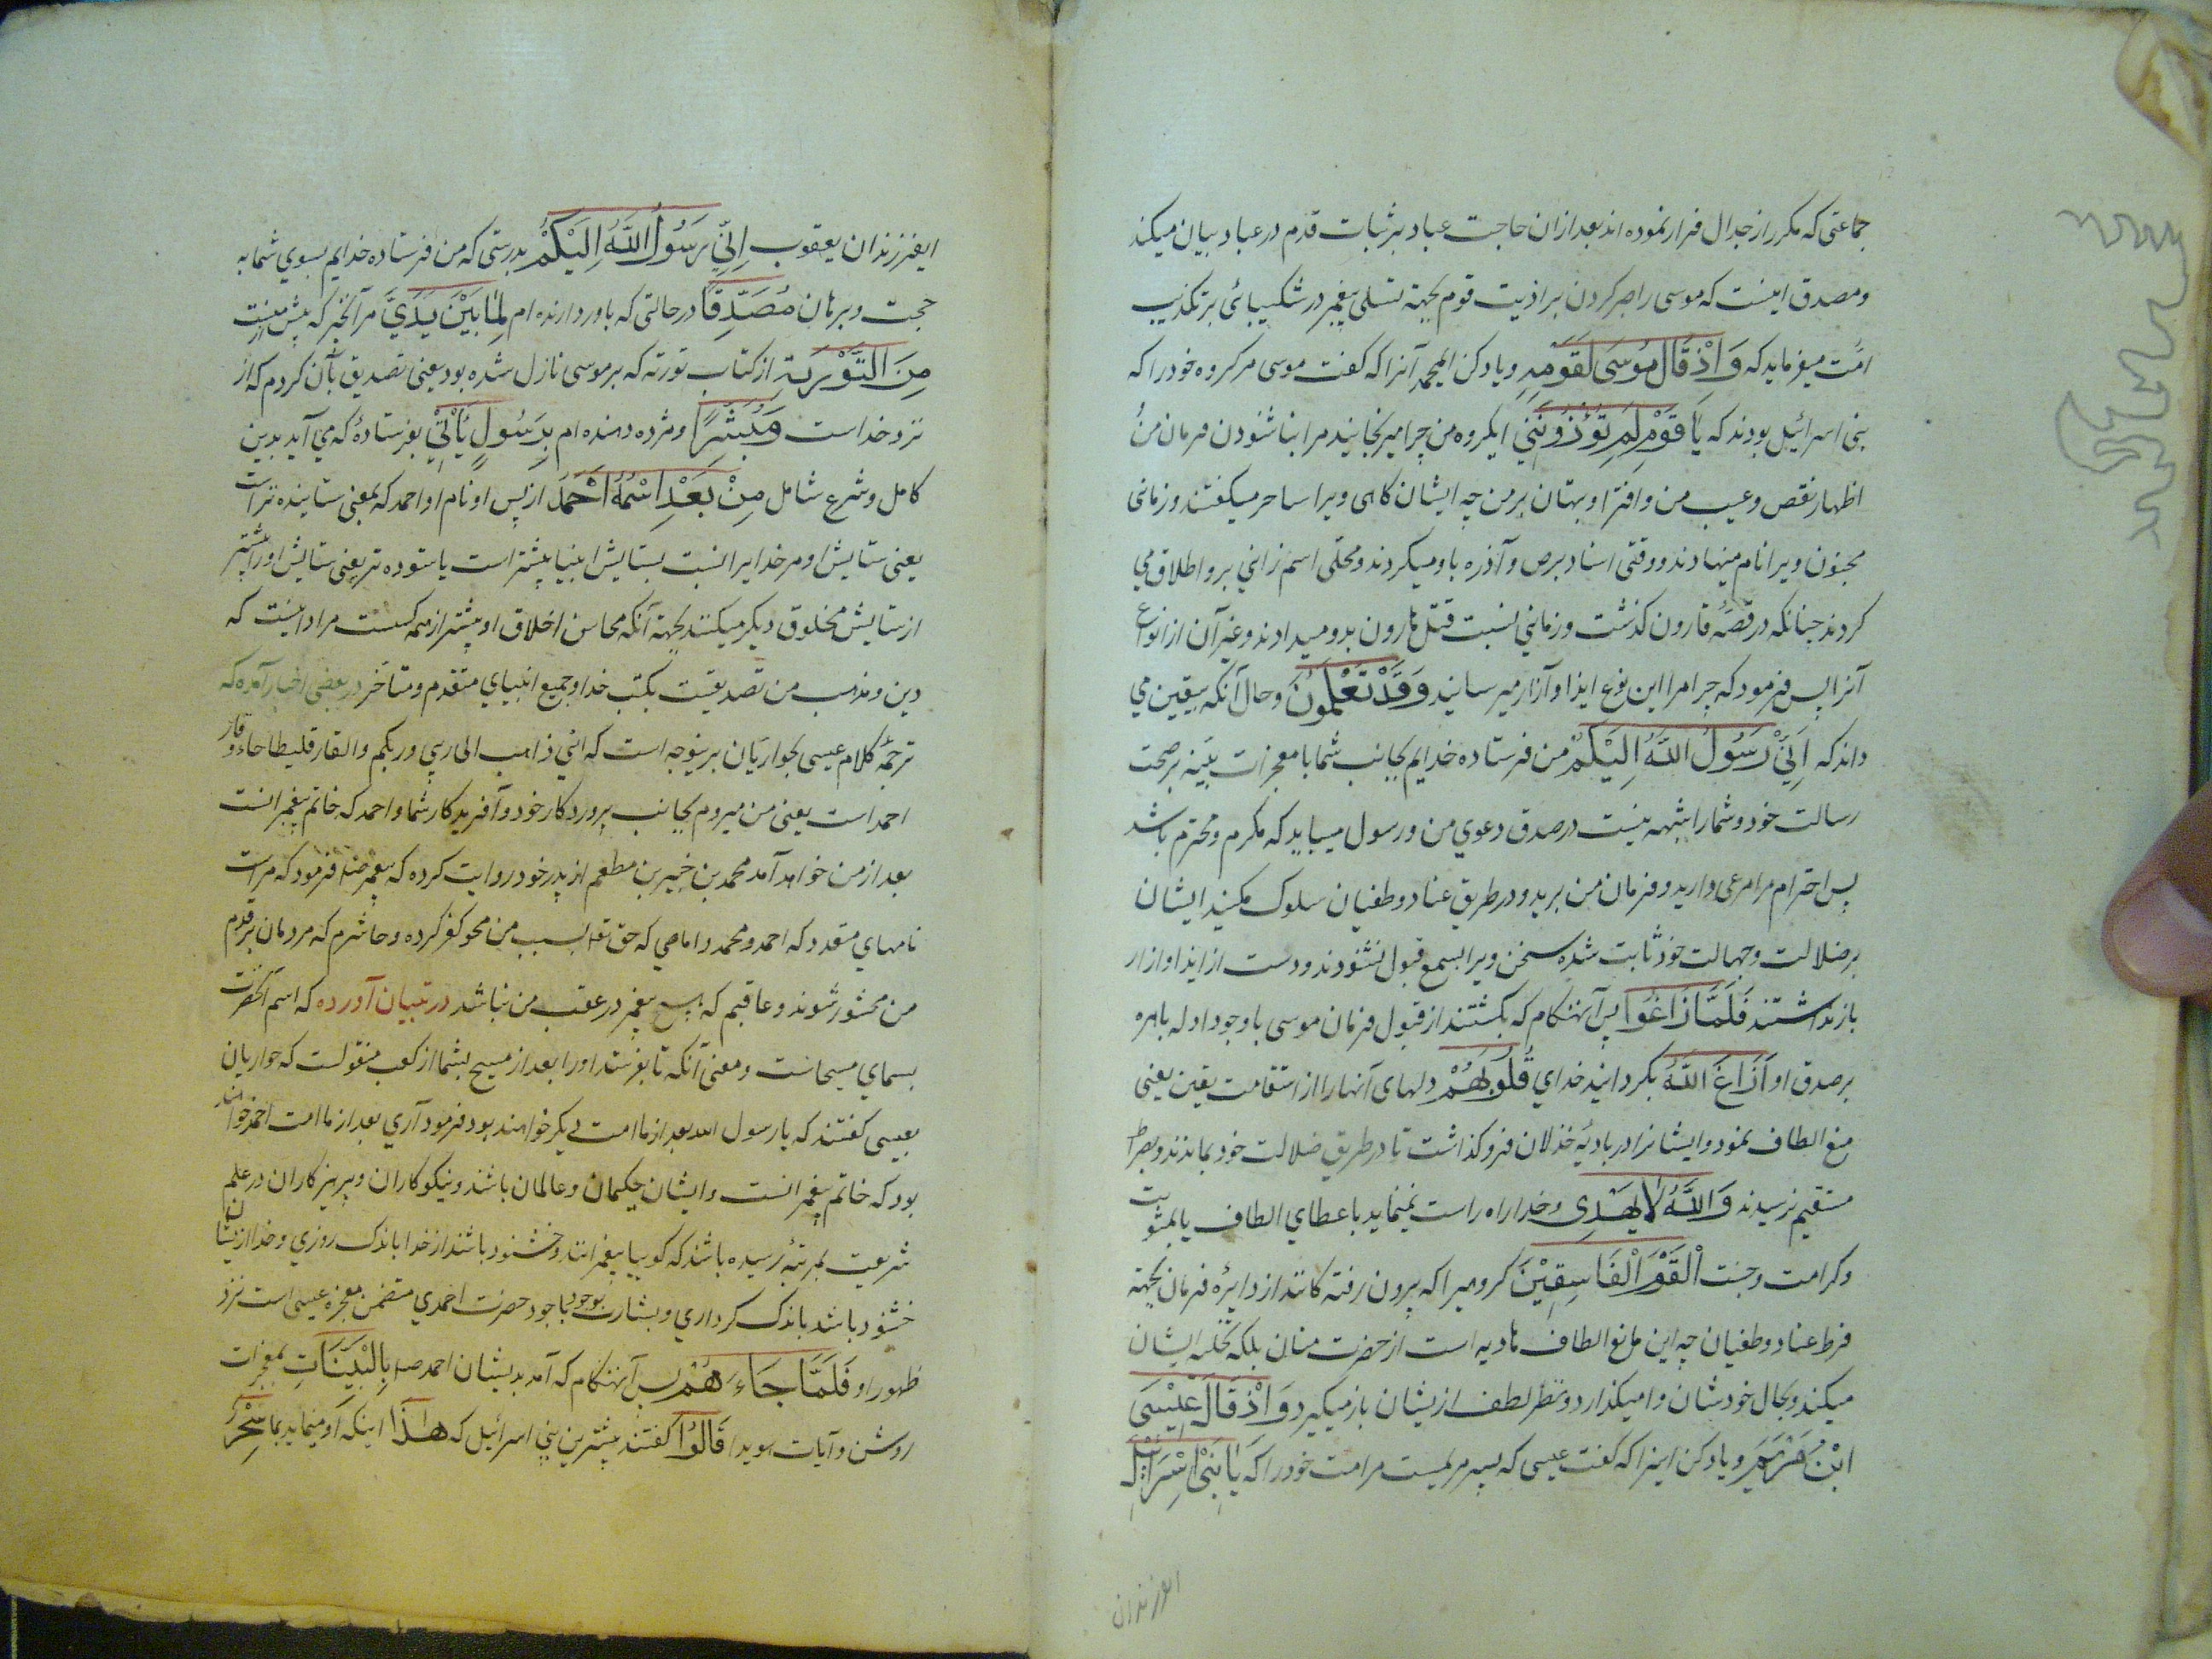 جماعتی که مکرر از جدال فرار نموده اند بعد ازان حاجت عباد بر ثبات قدم در عباد بیان میکند
و مصدق اینست که موسی را صبر کردن بر اذیت قوم بجهة تسلی پیغمبر در شکیبائی بر تکذیب
امّت میفرماید که وَاِذْ قَالَ مُوسَى لِقَوْمِهِ و یاد کن ایمحمد آنرا که کفت موسی مر کروه خود را که
بنی اسرائیل بودند که یَا قَوْمِ لِمَ تُؤْذُونَنِي ایکروه من چرا میرنجانید مرا بنا شنودن فرمان من
اظهار نقص و عیب من و افترا و بهتان بر من چه ایشان کاهی ویرا ساحر میکفتند و زمانی
مجنون ویرا نام مینهادند و وقتی اسناد برص و آذره باو میکردند و محلی اسم زانی برو اطلاق می
کردند چنانکه در قصّه قارون کذشت و زمانی نسبت قتل هارون بدو میدادند و غیر آن از انواع
آنرا پس فرمود که چرا مرا این نوع ایذا و آزار میرسانید وَقَدْ تَعْلَمُونَ و حال آنکه بیقین می
داند که اَنِّي رَسُولُ اللَّهِ اِلَيْكُمْ من فرستاده خدایم بجانب شما با معجزات بیّنه بر صحت
رسالت خود و شما را شبهه نیست در صدق دعوی من و رسول میباید که مکرم و محترم باشد
پس احترام مرا مرعی دارید و فرمان من برید و در طریق عناد و طغیان سلوک مکنید ایشان
بر ضلالت و جهالت خود ثابت شده سخن ویرا بسمع قبول نشنودند و دست از ایذا و ازار
باز نداشتند فَلَمَّا زَاغُوا پس آنهنکام که بکشتند از قبول فرمان موسی با وجود ادله باهره
بر صدق او اَزَاغَ اللَّهُ بکردانید خدای قُلُوبَهُمْ دلهای آنها را از استقامت یقین یعنی
منع الطاف نمود و ایشانرا در بادیهٔ خذلان فرو کذاشت تا در طریق ضلالت خود بماندند و بصراط
مستقیم نرسیدند وَاللَّهُ لَا يَهْدِي و خدا راه راست نمینماید باعطای الطاف یا بمثوبت
و کرامت و جنت الْقَوْمَ الْفَاسِقِينَ کروهیرا که بیرون رفته کانند از دایره فرمان بجهة
فرط عناد و طغیان چه این مانع الطاف هادیه است از حضرت منان بلکه تخلیه ایشان
میکند و بحال خودشان وا میکذارد و نظر لطف ازیشان باز میکیرد وَاِذْ قَالَ عِيْسَى
ابْنُ مَرْيَمَ و یاد کن اینرا که کفت عیسی که پسر مریمست مر امت خود را که يَا بَنِي اِسْرَائِيلَ
ایفرزندان
ایفرزندان یعقوب اِنِّي رَسُولُ اللَّهِ اِلَيْكُمْ بدرستی که من فرستاده خدایم بسوی شما به
حجت و برهان مُصَدِّقًا در حالتی که باور دارنده ام لِمَا بَيْنَ يَدَيَّ مر آنچیز که پیش منست
مِنَ التَّوْرَيةِ از کتاب تورته که بر موسی نازل شده بود یعنی تصدیق بآن کردم که از
نزد خداست وَمُبَشِّرًا و مژده دهنده ام بِرَسُولٍ يَأْتِي بفرستادهٔ که می آید بدین
کامل و شرع شامل مِنْ بَعْدِي اسْمُهُ اَحْمَدُ از پس او نام او احمد که بمعنی ستاینده تراست
یعنی ستایش او مر خدایرا نسبت بستایش انبیا بیشتر است یا ستوده تر یعنی ستایش او را بیشتر
از ستایش مخلوق دیکر میکنند بجهة آنکه محاسن اخلاق او بیشتر از همه کسست مراد اینست که
دین و مذهب من تصدیقست بکتب خدا و جمیع انبیای متقدم و متاخر در بعضی اخبار آمده که
ترجمهٔ کلام عیسی بحواریّان برینوجه است که انی ذاهب الی ربی و ربکم و الفارقلیطا جاء و فار
احمد است یعنی من میروم بجانب پروردکار خود و آفریدکار شما و احمد که خاتم پیغمبرانست
بعد از من خواهد آمد محمد بن جبیر بن مطعم از پدر خود روایت کرده که پیغمبر ص فرمود که مراست
نامهای متعدد که احمد و محمد و اماحی که حق تع بسبب من محو کفر کرده و حاشرم که مردمان بر قدم
من محشور شوند و عاقبم که هیچ پیغمبر در عقب من نباشد در تبیان آورده که اسم آنحضرت
بسمای مسیحاست و معنی آنکه تا بفرستد او را بعد از مسیح بشما از کعب منقولست که حواریان
بعیسی کفتند که یا رسول الله بعد از ما امت دیکر خواهند بود فرمود آری بعد از ما امت احمد خواهند
بود که خاتم پیغمبرانست و ایشان حکیمان و عالمان باشند و نیکوکاران و پرهیزکاران در علم
شریعت بمرتبهٔ رسیده باشند که کوییا پیغمبرانند و خشنود باشند از خدا باندک روزی و خدا ازیشان
خشنود باشد باندک کرداری و بشارت بوجود باجود حضرت احمدی متضمن معجزه عیسی است نزد
ظهور او فَلَمَّا جَاءَهُمْ پس آنهنکام که آمد بدیشان احمد ص بِالْبَيِّنَاتِ بمعجزات
روشن و آیات هویدا قَالُوا کفتند بیشترین بنی اسرائیل که هَذَا اینکه او مینماید بما سِحْرٌ